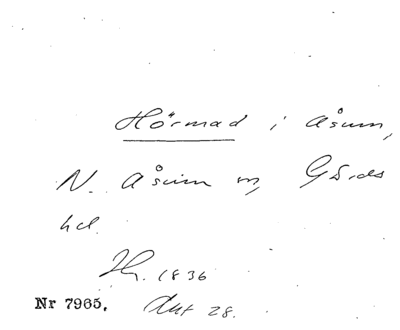 Hörmad i Åsum,
N. Åsum sn, Gärds
hd.
Hr. 1836
Nr 7965. Akt 28.